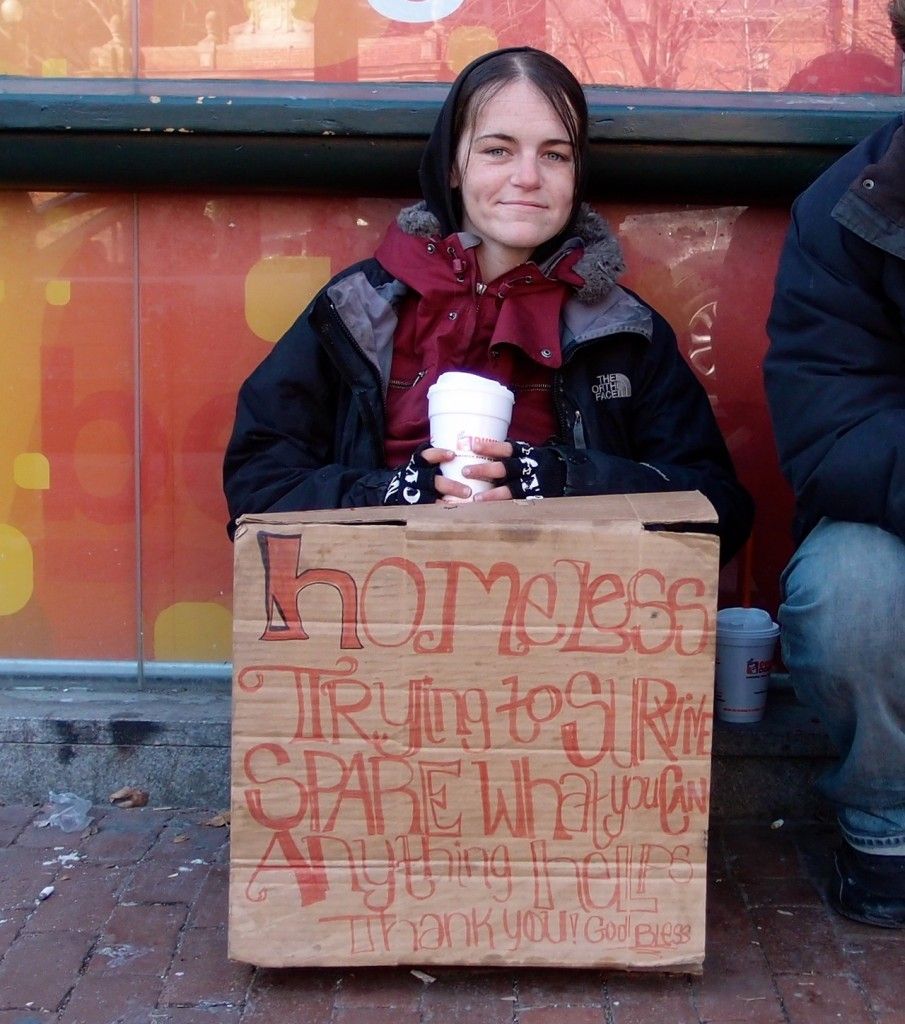 THE
NORTH
FACE
homeless
Trying to SURVIVE
SPARE What you CAN
Anything helps
Thank you! God Bless